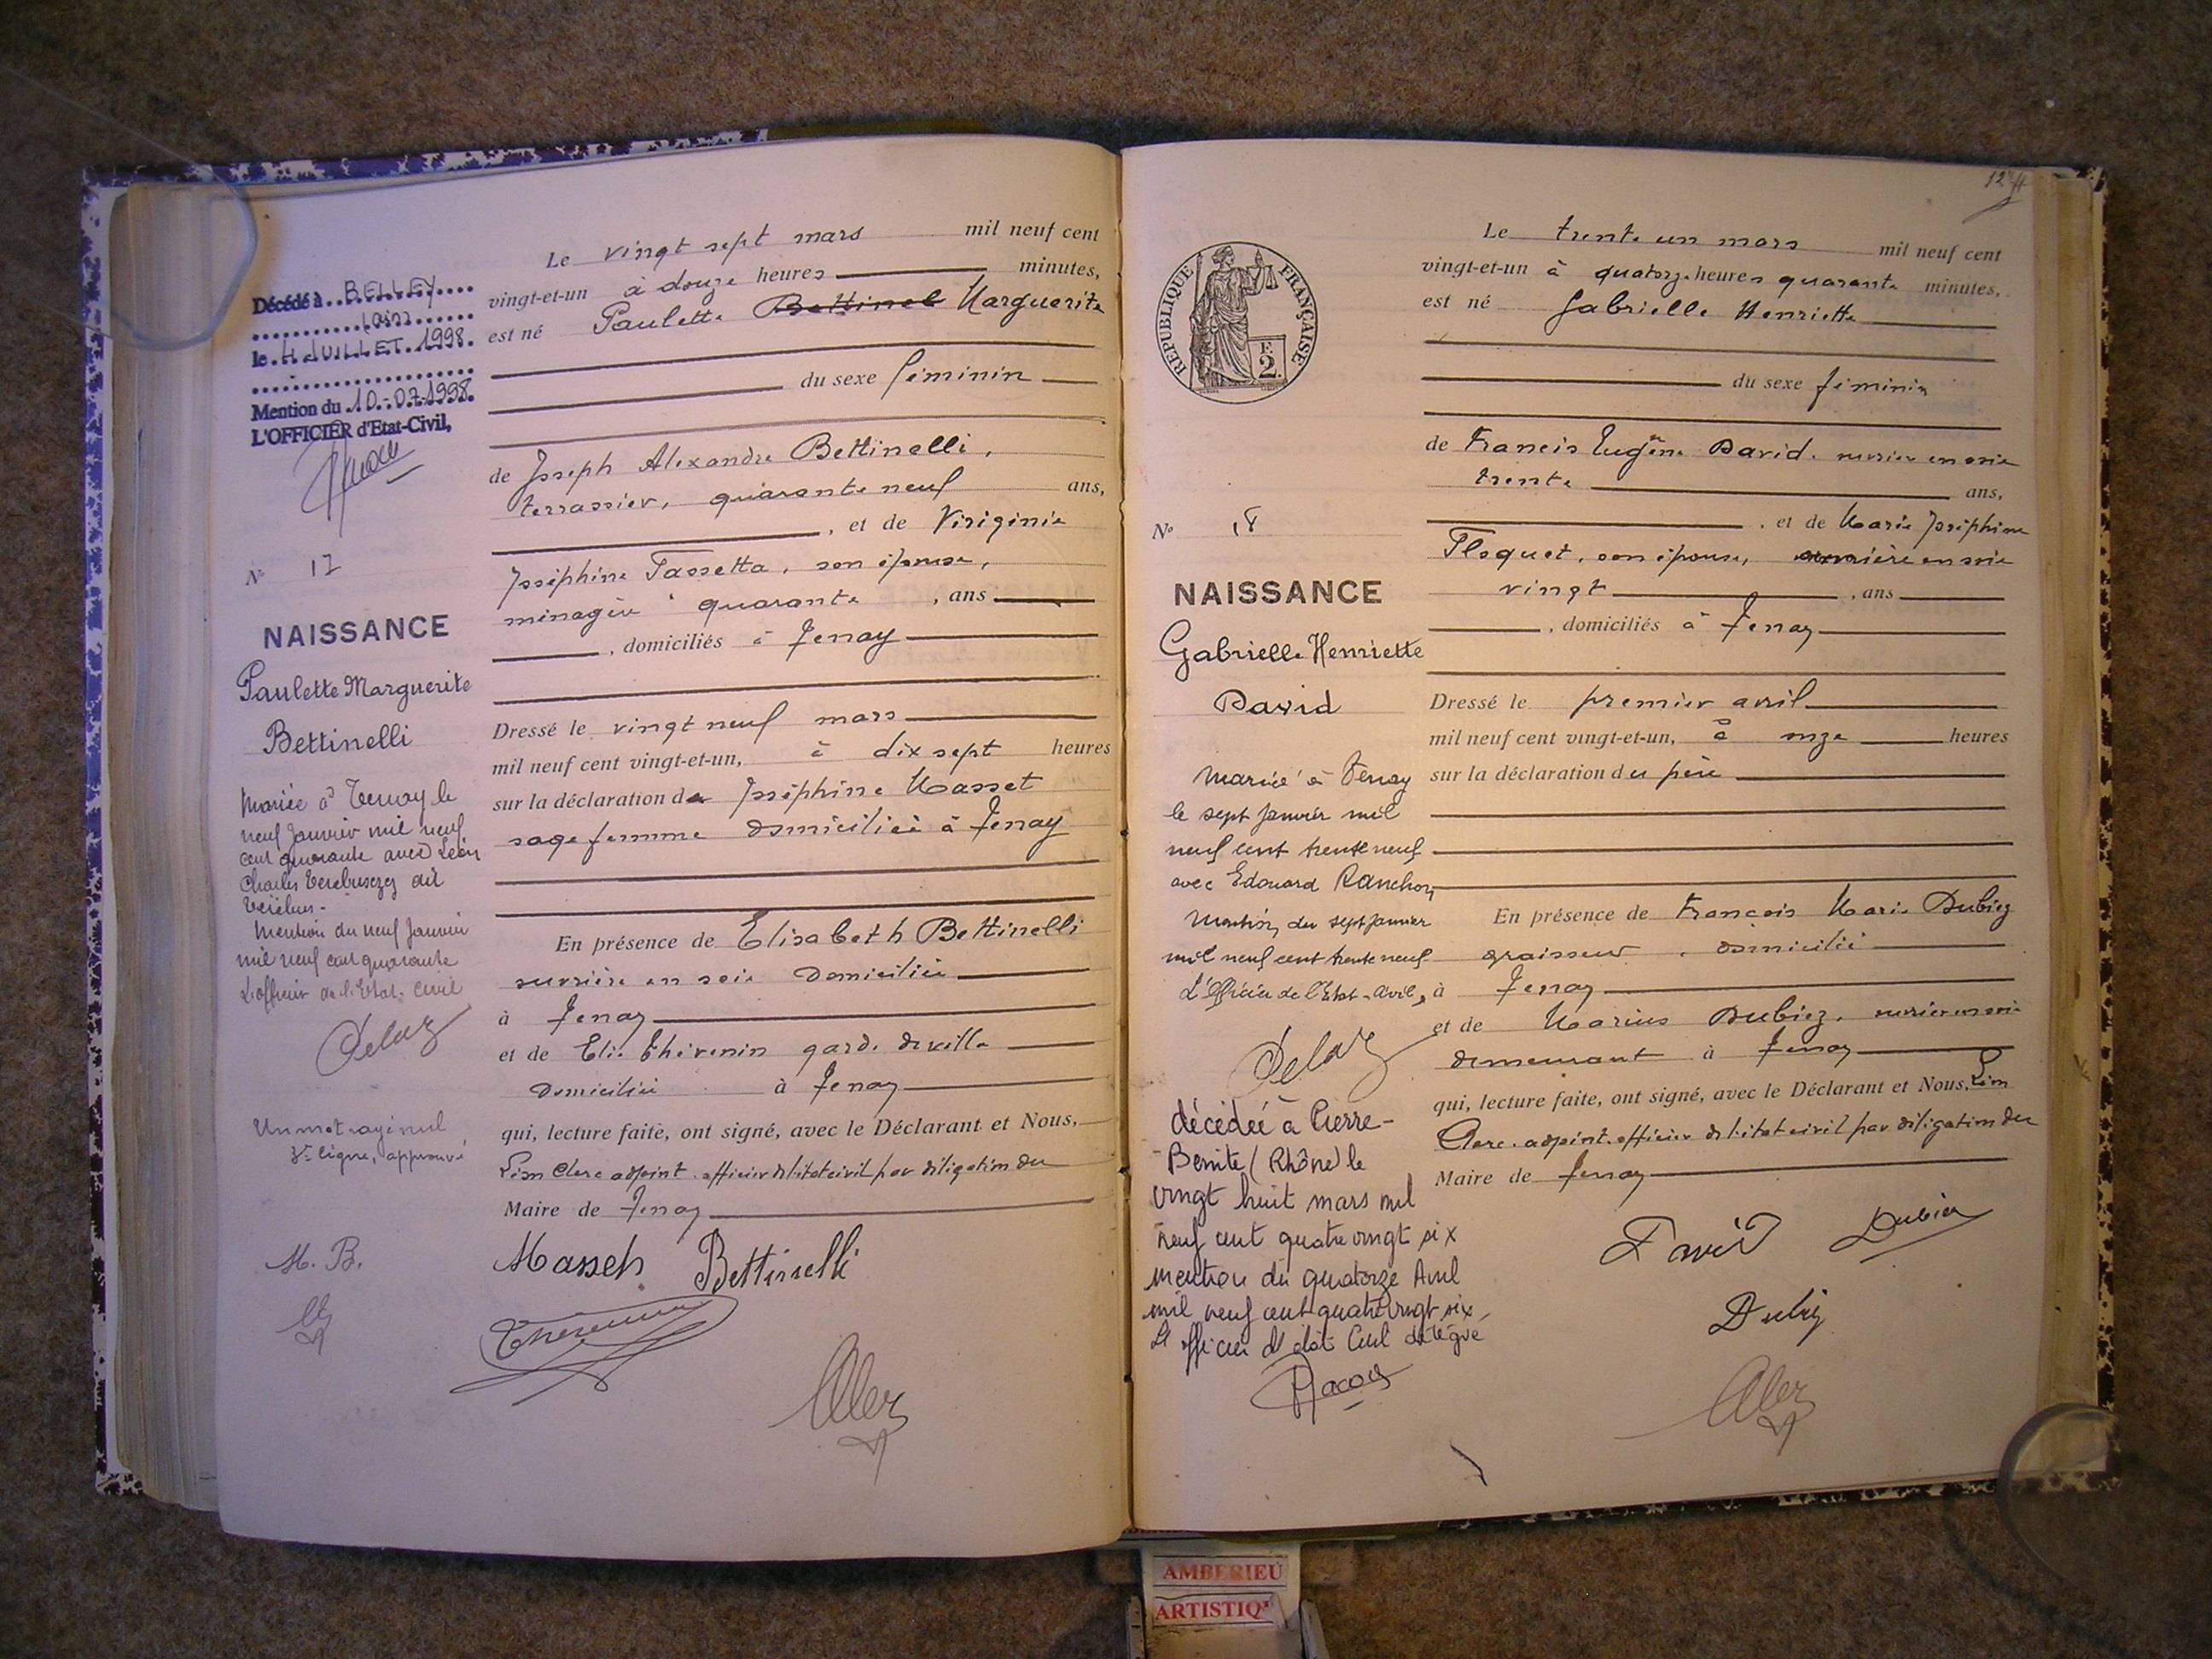 Décédé à BELLEY
(Ain)
le 4 JUILLET 1998.
Mention du 10-07-1998.
L'OFFICIER d'Etat-Civil,
N° 17
NAISSANCE
Paulette Marguerite
Bettinelli
Mariée à Tenay le
neuf Janvier mil neuf
cent quarante avec Léon
Charles
dit
Mention du neuf Janvier
mil neuf cent quarante
L'officier de l'Etat-Civil
Delaz
Un mot rayé nul
3e ligne, approuvé
M. B.
Le vingt sept mars mil neuf cent
vingt-et-un à douze heures minutes,
est né Paulette Bettinel Marguerite
du sexe féminin
de Joseph Alexandre Bettinelli,
terrassier, quarante neuf ans,
, et de Viriginie
Joséphine Tassetta, son épouse,
ménagère quarante , ans
, domiciliés à Tenay
Dressé le vingt neuf mars
mil neuf cent vingt-et-un, à dix sept heures
sur la déclaration de Joséphine Masset
sage femme domiciliée à Tenay
En présence de Elisabeth Bettinelli
ouvrière en soie domiciliée
à Tenay
et de Elie Thévenin garde de ville
domicilié à Tenay
qui, lecture faite, ont signé, avec le Déclarant et Nous,
Léon Clerc adjoint officier de l'état civil par délégation du
Maire de Tenay
Masset Bettinelli
Thévenin
12
N° 18
NAISSANCE
Gabrielle Henriette
David
Mariée à Tenay
le sept Janvier mil
neuf cent trente neuf
avec Edouard Ranchon
Mention du sept Janvier
mil neuf cent trente neuf
L'Officier de l'Etat-Civil,
Delaz
décédée à Pierre-
Bénite (Rhône) le
vingt huit mars mil
neuf cent quatre vingt six
mention du quatorze Avril
mil neuf cent quatre vingt six
L'officier d'état Civil délégué
REPUBLIQUE FRANÇAISE
F. 2.
Le trente un mars mil neuf cent
vingt-et-un à quatorze heures quarante minutes,
est né Gabrielle Henriette
du sexe féminin
de Francis Eugène David. ouvrier en soie
trente ans,
, et de Marie Joséphine
Floquet, son épouse, ouvrière en soie
vingt , ans
, domiciliés à Tenay
Dressé le premier avril
mil neuf cent vingt-et-un, à onze heures
sur la déclaration du père
En présence de François Marie Dubiez
graisseur, domicilié
à Tenay
et de Marius Dubiez, ouvrier en soie
demeurant à Tenay
qui, lecture faite, ont signé, avec le Déclarant et Nous, Léon
Clerc adjoint officier de l'état civil par délégation du
Maire de Tenay
David Dubiez
Dubiez
AMBERIEU
ARTISTIQ